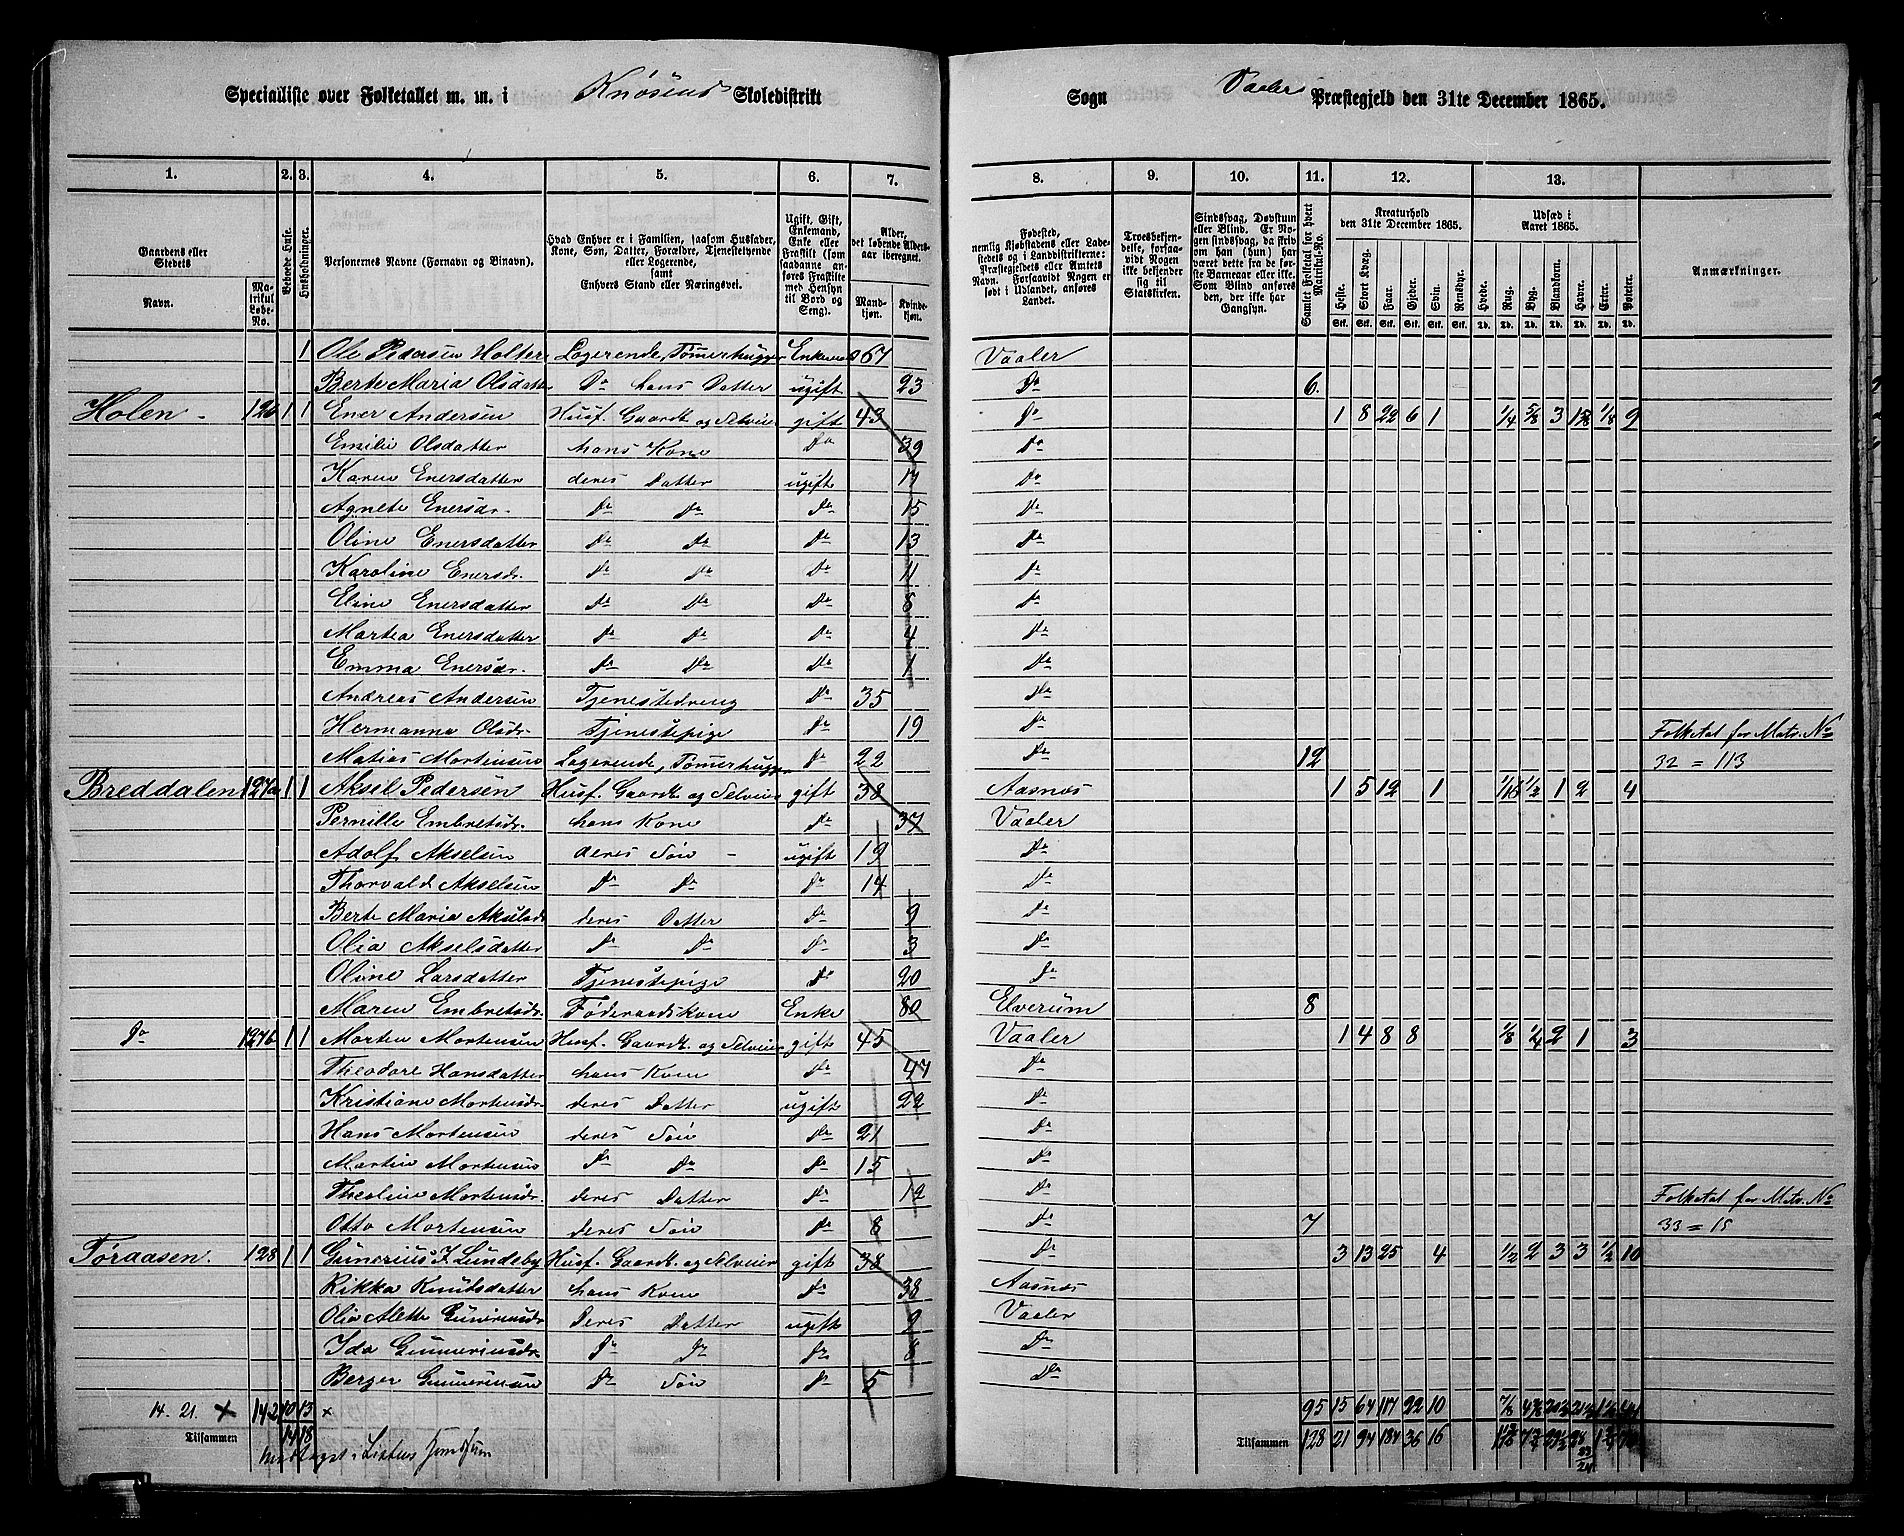 Specialliste over Folketallet m. m. i Knøsens Skoledistrikt
Sogn Vaaler Præstegjeld den 31te December 1865.
1. 2. 3. 4. 5. 6. 7. 8. 9. 10. 11. 12. 13.
Gaardens eller Stedets
Navn. Matrikul Løbe-No.
Beboede Huse.
Husholdninger.
Personernes Navne (Fornavn og Binavn).
Hvad Enhver er i Familien, saasom Husfader, Kone, Søn, Datter, Forældre, Tjenestetyende eller Logerende, samt Enhvers Stand eller Næringsvei.
Ugift, Gift, Enkemand, Enke eller Fraskilt (som saadanne anføres Fraskilte med Hensyn til Bord og Seng).
Alder, det løbende Alders-aar iberegnet.
Mand-kjøn. Kvinde-kjøn.
Fødested, nemlig Kjøbstadens eller Ladestedets og i Landdistrikterne: Præstegjeldets eller Amtets Navn. Forsaavidt Nogen er født i Udlandet, anføres Landet.
Troesbekjendelse, forsaavidt Nogen ikke bekjender sig til Statskirken.
Sindssvag, Døvstum eller Blind. Er Nogen sindssvag, da skrives om han (hun) har været dette fra de første Barneaar eller ikke. Som Blind anføres den, der ikke har Gangsyn.
Samlet Folketal for hvert Matrikul-No.
Kreaturhold den 31te December 1865.
Heste. Stort Kvæg. Faar. Gjeder. Svin. Rensdyr.
Udsæd i Aaret 1865.
Hvede. Rug. Byg. Blandkorn. Havre. Erter. Poteter.
Anmærkninger.
1 Ole Pedersen Holter Logerende, Tømmerhugger Enkem 67 Vaaler
Berte Maria Olsdatter Do hans Datter ugift 23 Do 6.
Holen 126 1 1 Ener Andersen Husf. Gaardb. og Selveier gift 43 Do 1 8 22 6 1 1/4 5/8 3 1/8 9
Emilie Olsdatter hans Kone Do 39 Do
Karen Enersdatter deres Datter ugift 17 Do
Agnete Enersdr. Do Do Do 15 Do
Oline Enersdatter Do Do Do 13 Do
Karoline Enersdr. Do Do Do 11 Do
Eline Enersdatter Do Do Do 8 Do
Martea Enersdatter Do Do Do 4 Do
Emma Enersdr. Do Do Do 1 Do
Andreas Andersen Tjenestedreng Do 35 Do
Hermanna Olsdr. Tjenestepige Do 19 Do Folketal for Matr. No
Matias Mortensen Logerende, Tømmerhugger Do 22 Do 12 32 = 113
Breddalen 127a 1 1 Aksel Pedersen Husf. Gaardb. og Selveier gift 38 Aasnes 1 5 12 1 1/16 1/2 1 2 4
Pernille Embretsdr. hans Kone Do 37 Vaaler
Adolf Akselsen deres Søn - ugift 19 Do
Thorvald Akselsen Do Do Do 14 Do
Berte Maria Akselsdr deres Datter Do 9 Do
Olia Akselsdatter Do Do Do 3 Do
Oline Larsdatter Tjenestepige Do 20 Do
Maren Embretsdr. Føderaadskone Enke 80 Elverum 8
Do 127b 1 1 Morten Mortensen Husf. Gaardb. og Selveier gift 45 Vaaler 1 4 8 8 1/8 1/4 2 1 3
Theodore Hansdatter hans Kone Do 47 Do
Kristiane Mortensdr. deres Datter ugift 22 Do
Hans Mortensen deres Søn Do 21 Do
Martin Mortensen Do Do Do 15 Do
Theoline Mortensdr. deres Datter Do 12 Do Folketal for Matr. No
Otto Mortensen deres Søn Do 8 Do 7 33 = 15
Toraasen. 128 1 1 Gunerius J Lundeby Husf. Gaardb. og Selveier gift 38 Do 3 13 25 4 1/2 2 3 3 1/2 10
Rikka Knutsdatter hans Kone Do 38 Aasnes
Olia Alette Guneriusdr Deres Datter ugift 9 Vaaler
Ida Gunneriusdr. Do Do Do 8 Do
Berger Gunneriusen Do Søn Do 5 Do
14-21. x 142 10 13 x 95 15 64 117 22 10 7/8
Tilsammen 14 18 Tilsammen 128 21 94 184 36 16